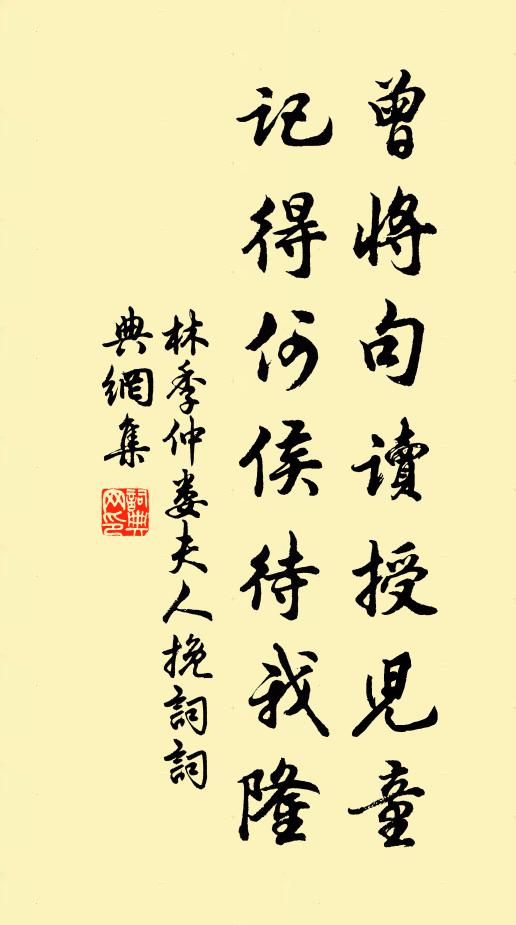 曾將句讀授兒童
記得何侯待我隆
林季仲婁夫人挽詞詞
典網集
詞典网印